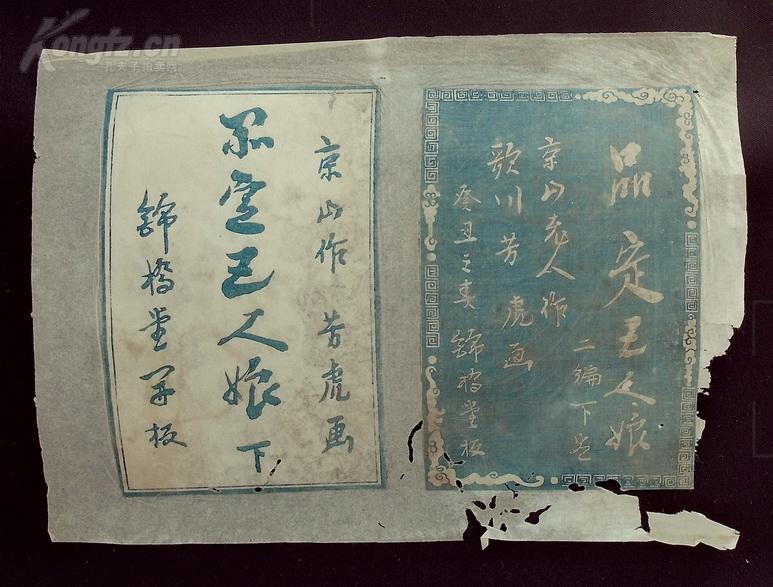 Kongfz.cn
孔夫子拍卖网
品定五人娘
二編下巻
京山老人作
歌川芳虎画
癸丑之春 錦橋堂板
京山作 芳虎画
品定五人娘 下
錦橋堂
板